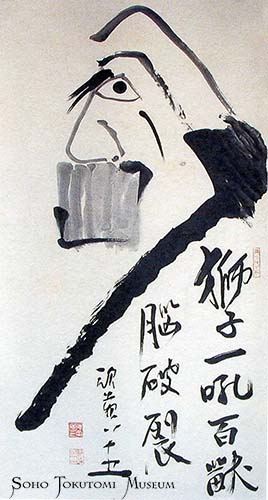 獅子一吼百獸
腦破裂
八十五
SOHO TOKUTOMI MUSEUM